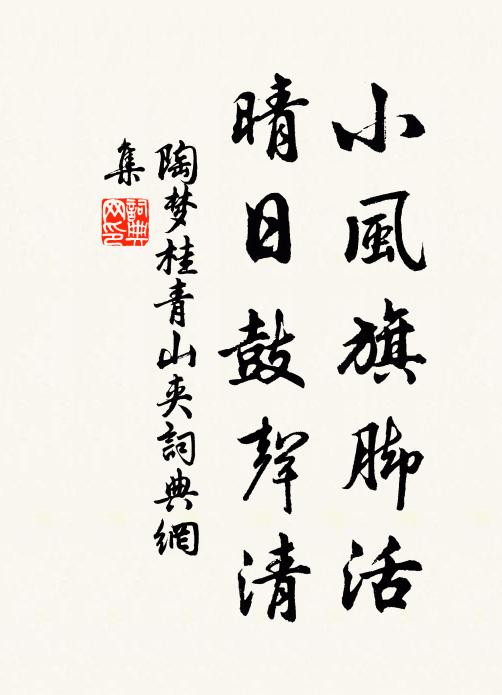 小風旗脚活
晴日鼓聲清
陶梦桂青山夹詞典網
集
詞典網印